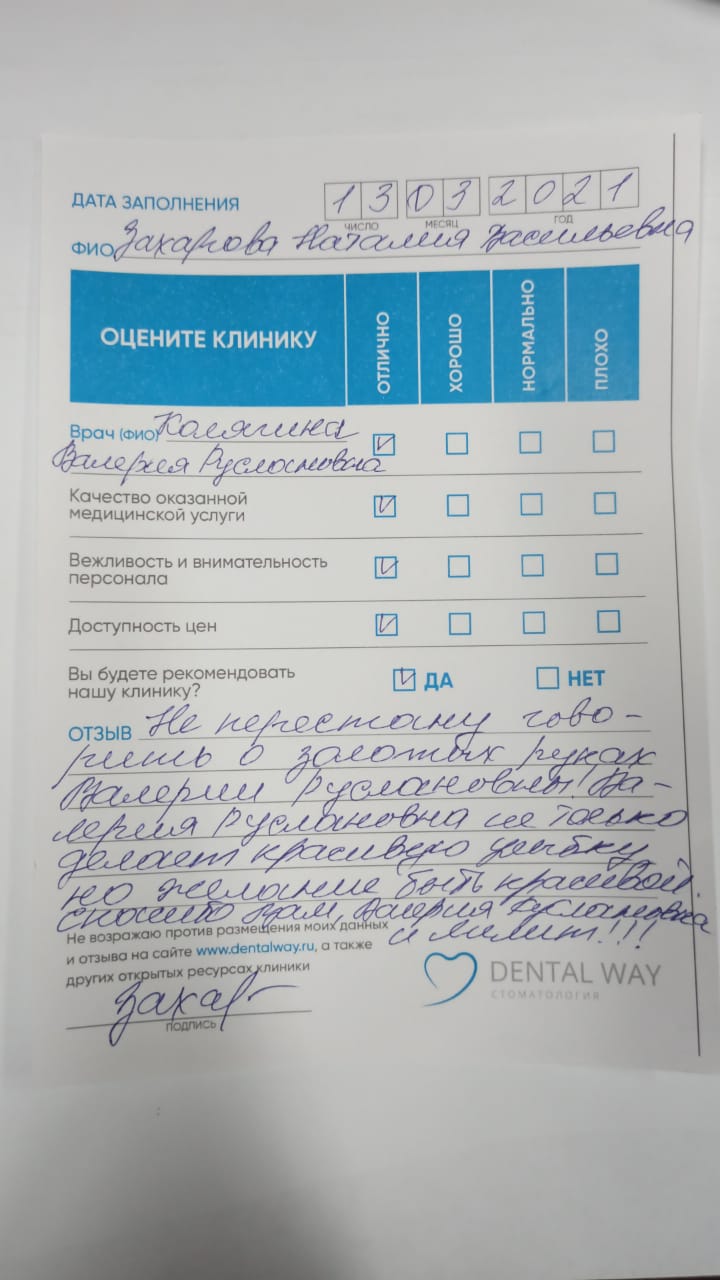 ДАТА ЗАПОЛНЕНИЯ 13 03 2021
ЧИСЛО МЕСЯЦ ГОД
ФИО Захарова Наталия Васильевна
ОЦЕНИТЕ КЛИНИКУ ОТЛИЧНО ХОРОШО НОРМАЛЬНО ПЛОХО
Врач (ФИО) Колягина
Валерия Руслановна
Качество оказанной
медицинской услуги
Вежливость и внимательность
персонала
Доступность цен
Вы будете рекомендовать
нашу клинику? ДА НЕТ
ОТЗЫВ Не перестану гово-
рить о золотых руках
Валерии Руслановны! Ва-
лерия Руслановна не только
делает красивую улыбку,
но желание быть красивой.
спасибо Вам, Валерия Руслановна
и Лилит!!!
Не возражаю против размещения моих данных
и отзыва на сайте www.dentalway.ru, а также
других открытых ресурсах клиники
Захар
ПОДПИСЬ
DENTAL WAY
СТОМАТОЛОГИЯ